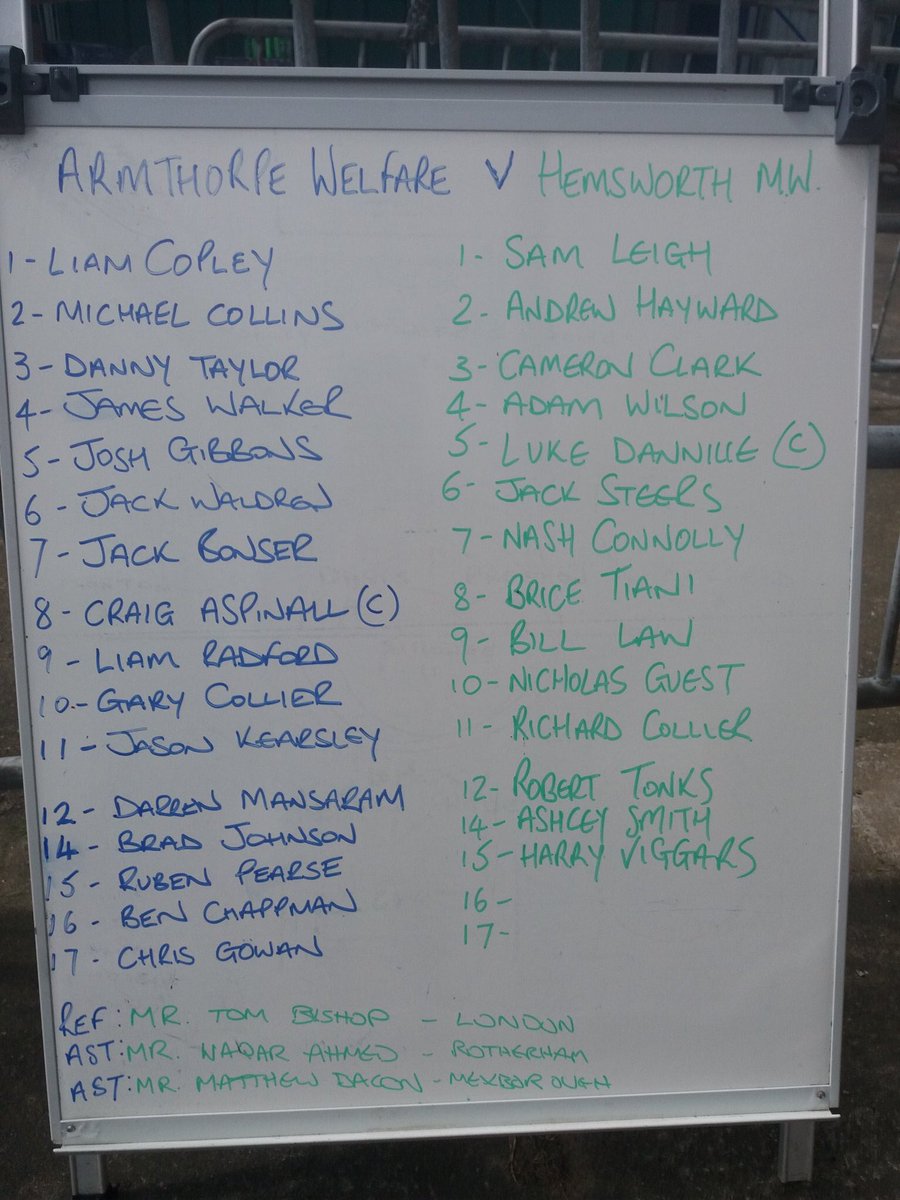 ARMTHORPE WELFARE V HEMSWORTH M.W.
1 - LIAM COPLEY
2 - MICHAEL COLLINS
3 - DANNY TAYLOR
4 - JAMES WALKER
5 - JOSH GIBBONS
6 - JACK WALDREN
7 - JACK BONSER
8 - CRAIG ASPINALL (C)
9 - LIAM RADFORD
10 - GARY COLLIER
11 - JASON KEARSLEY
12 - DARREN MANSARAM
14 - BRAD JOHNSON
15 - RUBEN PEARSE
16 - BEN CHAPPMAN
17 - CHRIS GOWAN
1 - SAM LEIGH
2 - ANDREW HAYWARD
3 - CAMERON CLARK
4 - ADAM WILSON
5 - LUKE DANVILLE (C)
6 - JACK STEERS
7 - NASH CONNOLLY
8 - BRICE TIANI
9 - BILL LAW
10 - NICHOLAS GUEST
11 - RICHARD COLLIER
12 - ROBERT TONKS
14 - ASHLEY SMITH
15 - HARRY VIGGARS
16 -
17 -
REF: MR. TOM BISHOP - LONDON
AST: MR. WAQAR AHMED - ROTHERHAM
AST: MR. MATTHEW DACON - MEXBOROUGH